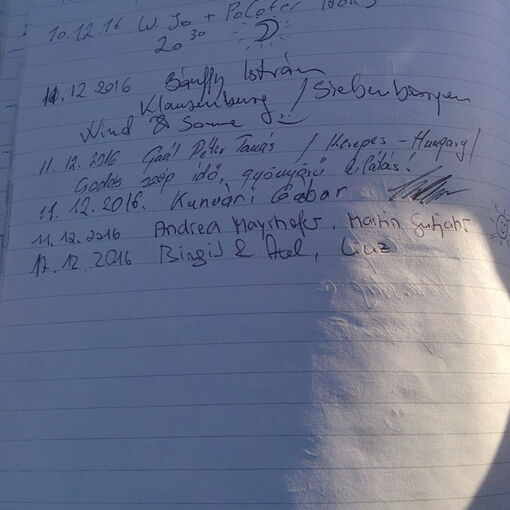 10.12.16 W. Jo +
20³⁰
11.12.2016 Bánffy István
Klausenburg / Siebenbürgen
Wind & Sonne
11.12.2016 Gaál Péter Tamás / Kerepes - Hungary/
szép idő, gyönyörű kilátás!
11.12.2016. Kunvári Gábor
11.12.2016 Andrea Mayrhofer, Martin
12.12.2016 Birgit & Axel, Linz